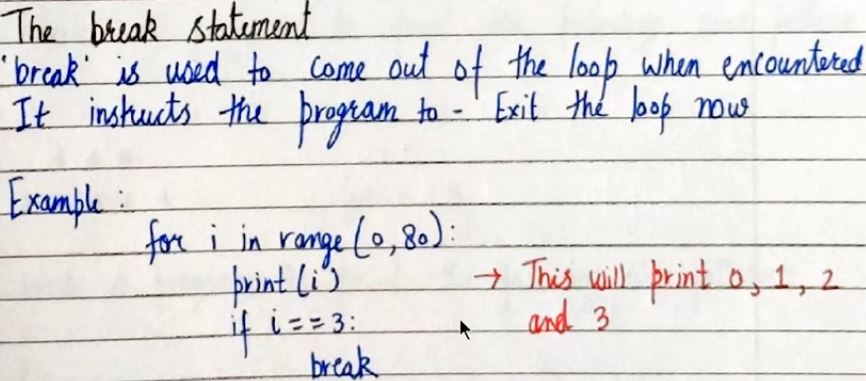 The break statement
'break' is used to come out of the loop when encountered
It instructs the program to - Exit the loop now
Example :
for i in range (0,80):
print (i) → This will print 0, 1, 2
if i == 3: and 3
break